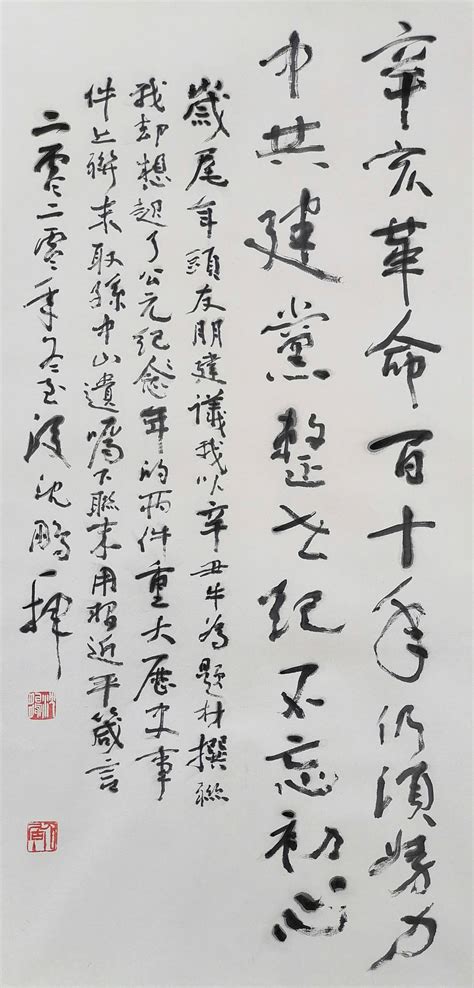 辛亥革命百十年仍須努力
中共建黨整世紀不忘初心
歲尾年頭友朋建議我以辛丑牛為題材撰聯
我却想起了公元紀念年的兩件重大歷史事
件上聯末取孫中山遺嘱下聯末用習近平箴言
二零二零年冬至後沈鵬一揮